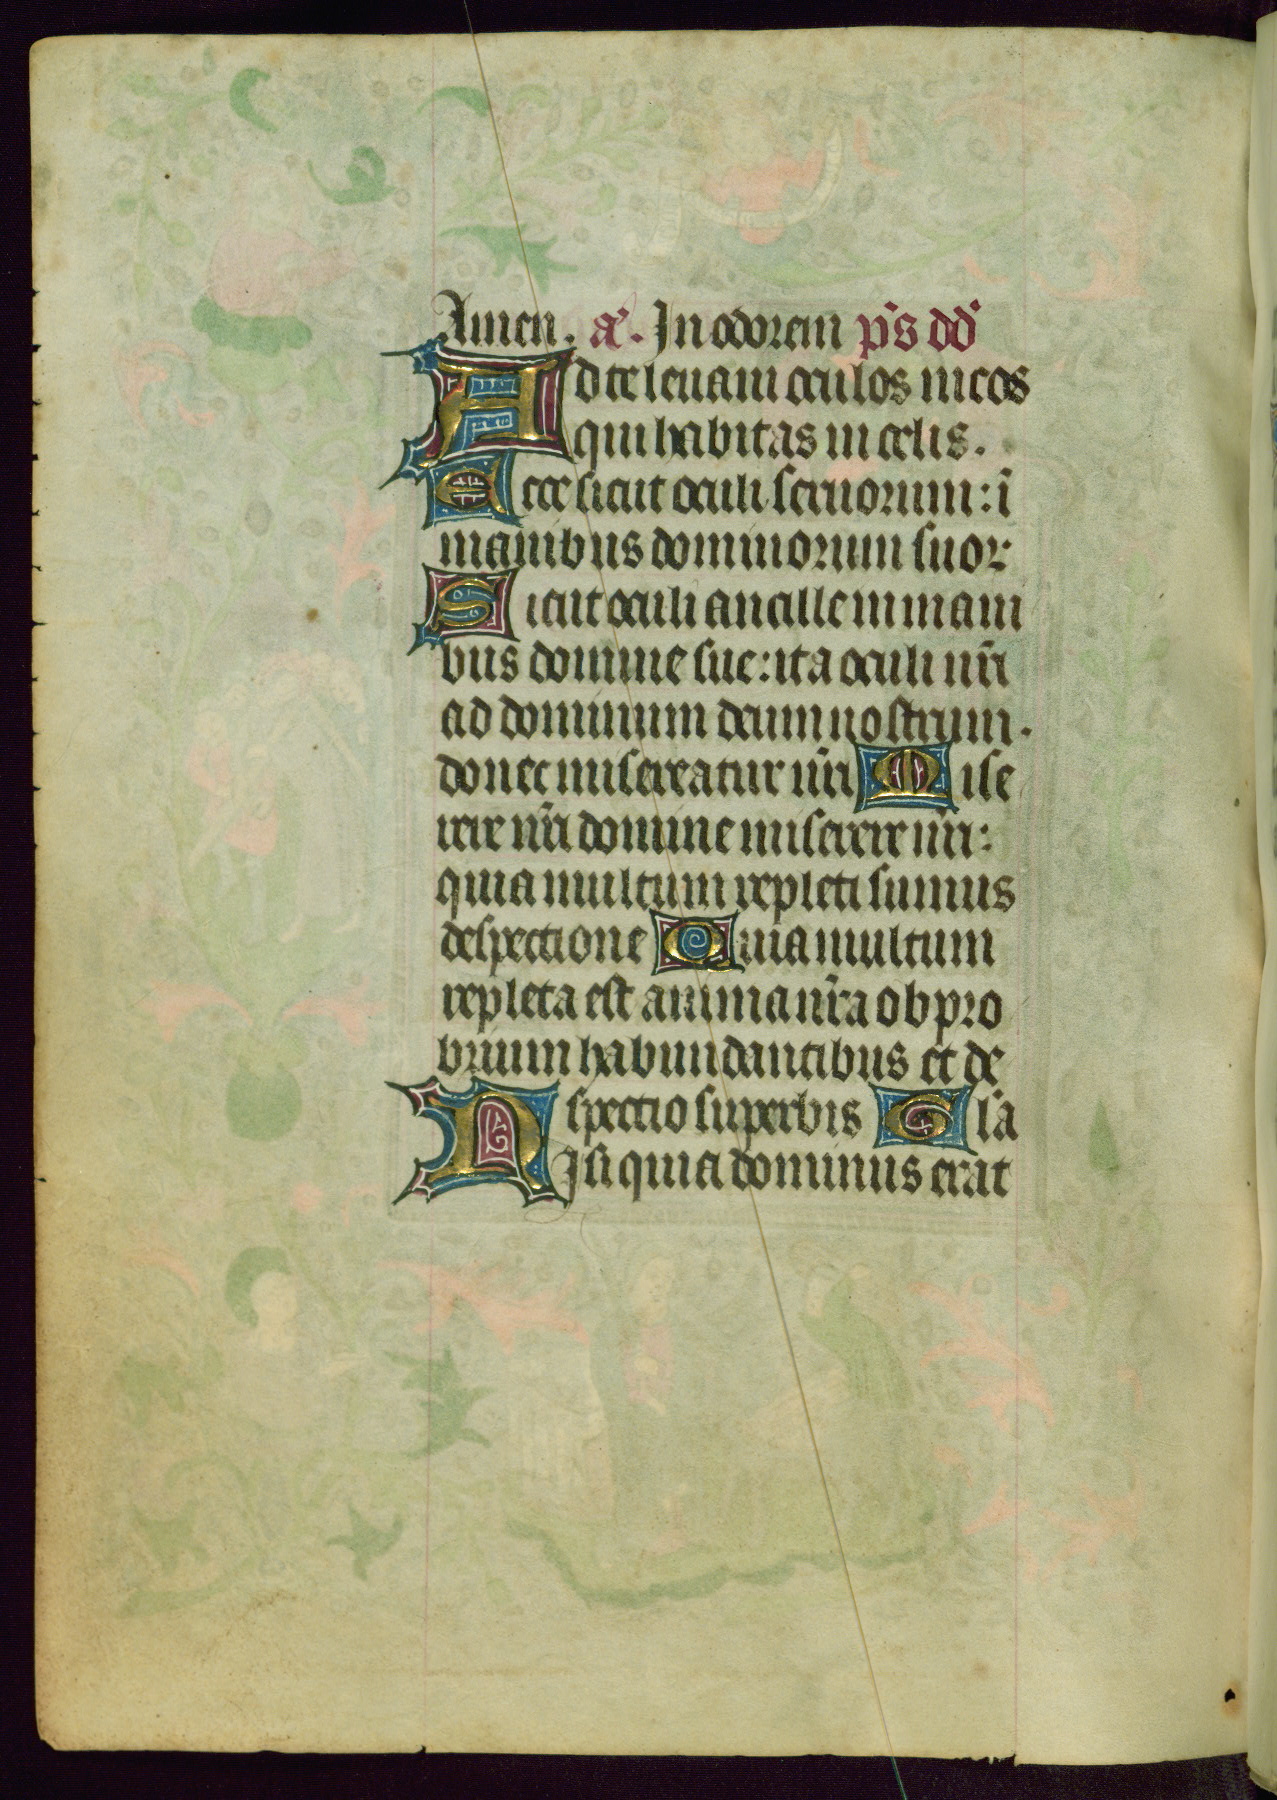 Amen. a'. In odorem p̄s dd̄
Ad te leuaui oculos meos
qui habitas in celis.
Ecce sicut oculi seruorum: ī
manibus dominorum suoꝝ
Sicut oculi ancille in mani
bus domine sue: ita oculi nr̄i
ad dominum deum nostrum.
donec misereatur nr̄i Mise
rere nr̄i domine miserere nr̄i:
quia multum repleti sumus
despectione Quia multum
repleta est anima nr̄a obpro
brium habundantibus et de
spectio superbis Gl̄a
Nisi quia dominus erat